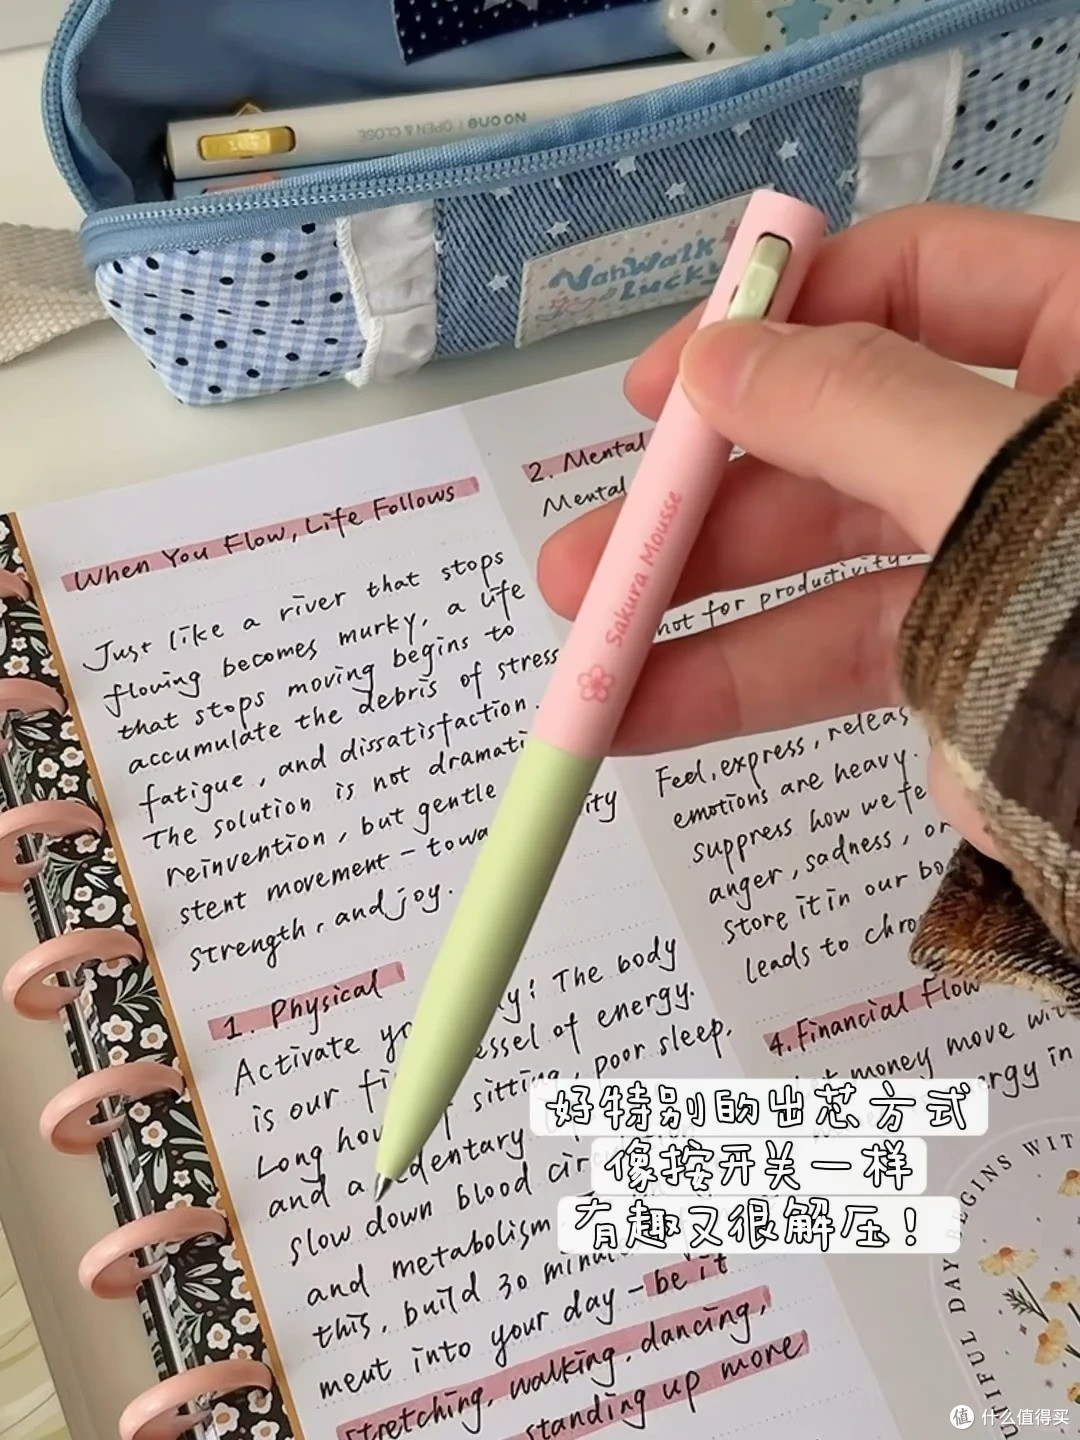 No one | OPEN & CLOSE
VanWalk
Lucky
Sakura Mousse
When You Flow, Life Follows
Just like a river that stops
flowing becomes murky, a life
that stops moving begins to
accumulate the debris of stress
fatigue, and dissatisfaction.
The solution is not
reinvention, but gentle
stent movement - 
strength, and joy.
1. Physical
Activate The body
is our energy.
Long sitting, poor sleep.
and a
slow down blood
and metabolism
this, build 30
ment into your day - be it
stretching, walking, dancing,
standing up more
2. Mental
Mental
not for productivity.
Feel, express,
emotions are heavy.
suppress how we
anger, sadness, or
store it in our
leads to
4. Financial Flow
money move
in
好特别的出芯方式
像按开关一样
有趣又很解压！
值 什么值得买